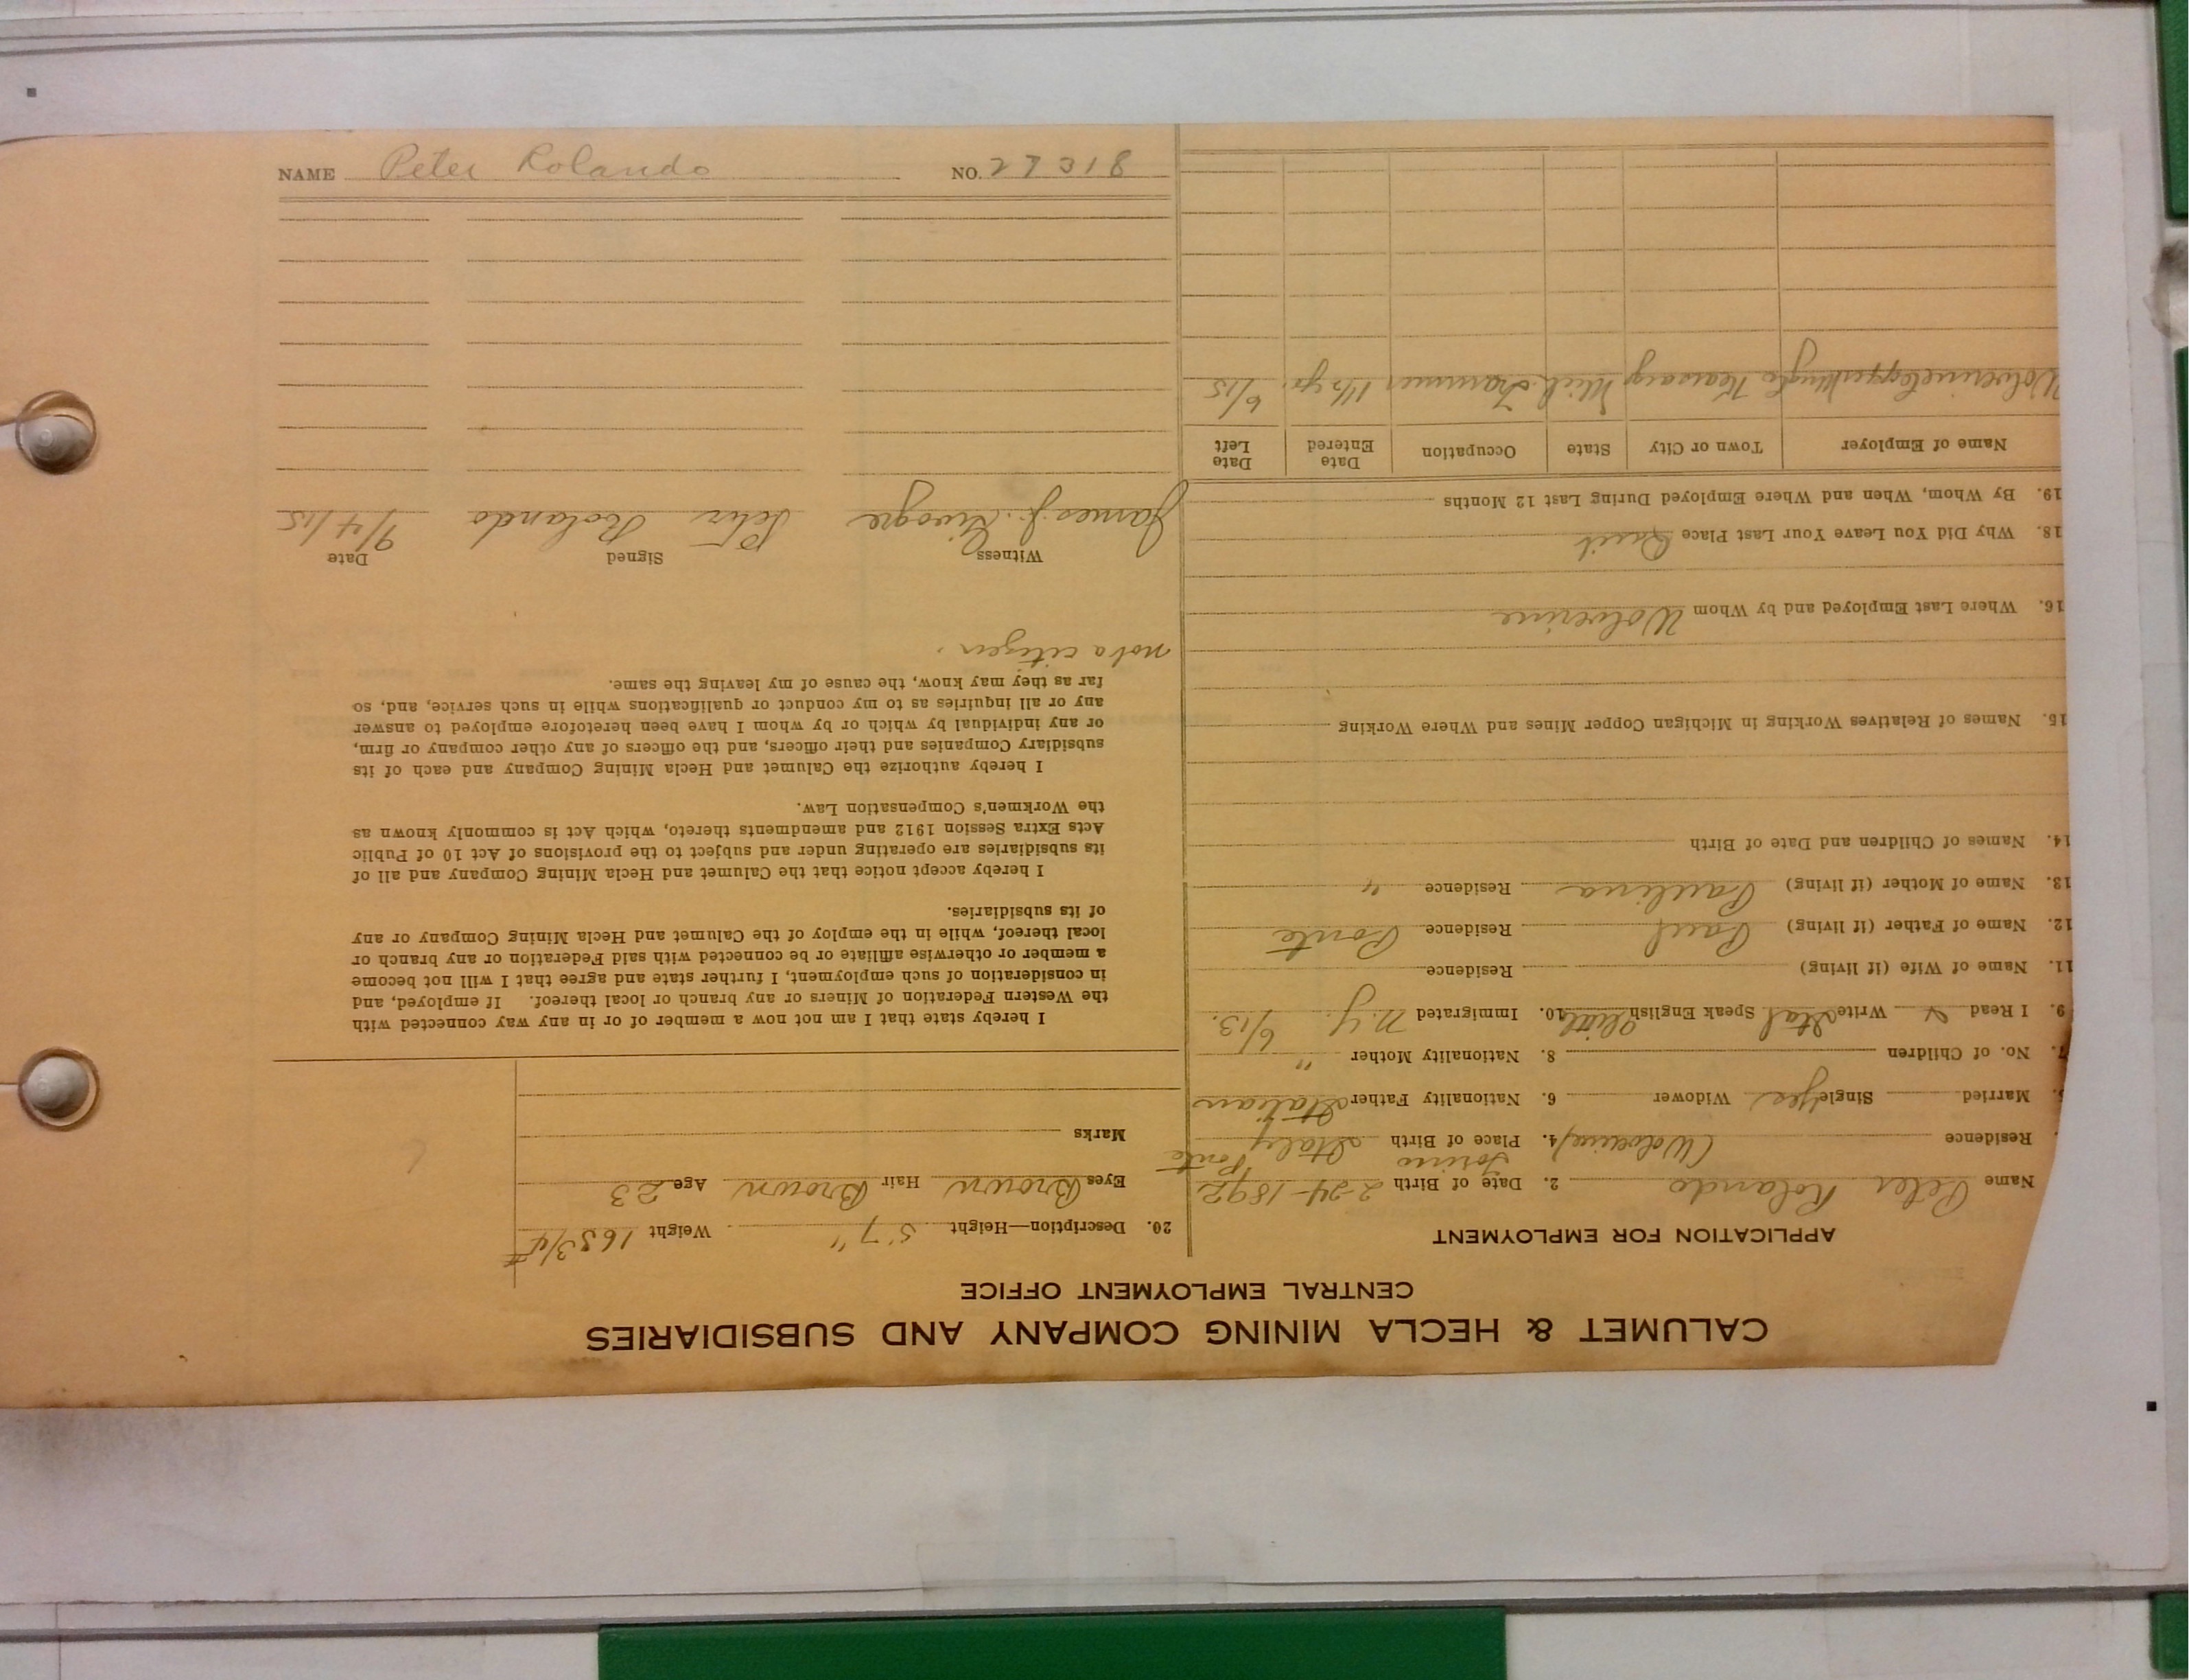 NAME Peter Rolando NO. 27318
CALUMET & HECLA MINING COMPANY AND SUBSIDIARIES
CENTRAL EMPLOYMENT OFFICE
APPLICATION FOR EMPLOYMENT
Name Peter Rolando 2. Date of Birth 2-24-1892
Torino Ponte
Residence (Wolverine) 4. Place of Birth Italy
Married Single Yes Widower 6. Nationality Father Italian
7. No. of Children 8. Nationality Mother "
9. I Read Write Ital Speak English little 10. Immigrated N.Y. 6/13.
11. Name of Wife (if living) Residence
12. Name of Father (if living) Paul Residence Ponte
13. Name of Mother (if living) Paulina Residence "
14. Names of Children and Date of Birth
15. Names of Relatives Working in Michigan Copper Mines and Where Working
16. Where Last Employed and by Whom Wolverine
18. Why Did You Leave Your Last Place Quit
19. By Whom, When and Where Employed During Last 12 Months
Name of Employer Town or City State Occupation Date Entered Date Left
Wolverine Copper Mng Co Kearsarg Mich Trammer 1 1/2 yr. 6/15
20. Description—Height 5'7" Weight 163 3/4 #
Eyes Brown Hair Brown Age 23
Marks
I hereby state that I am not now a member of or in any way connected with
the Western Federation of Miners or any branch or local thereof. If employed, and
in consideration of such employment, I further state and agree that I will not become
a member or otherwise affiliate or be connected with said Federation or any branch or
local thereof, while in the employ of the Calumet and Hecla Mining Company or any
of its subsidiaries.
I hereby accept notice that the Calumet and Hecla Mining Company and all of
its subsidiaries are operating under and subject to the provisions of Act 10 of Public
Acts Extra Session 1912 and amendments thereto, which Act is commonly known as
the Workmen's Compensation Law.
I hereby authorize the Calumet and Hecla Mining Company and each of its
subsidiary Companies and their officers, and the officers of any other company or firm,
or any individual by which or by whom I have been heretofore employed to answer
any or all inquiries as to my conduct or qualifications while in such service, and, so
far as they may know, the cause of my leaving the same.
not a citizen.
Witness Signed Date
James J. Rolando 9/4/15